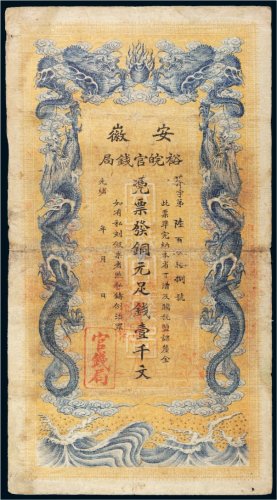 安徽
裕皖官錢局
芥字第陸百拾捌號
此票準完納本省丁漕及關稅鹽課釐金
憑票發銅元足錢壹千文
如有私刻假票者照私鑄例治罪
光緒 年 月 日
官錢局